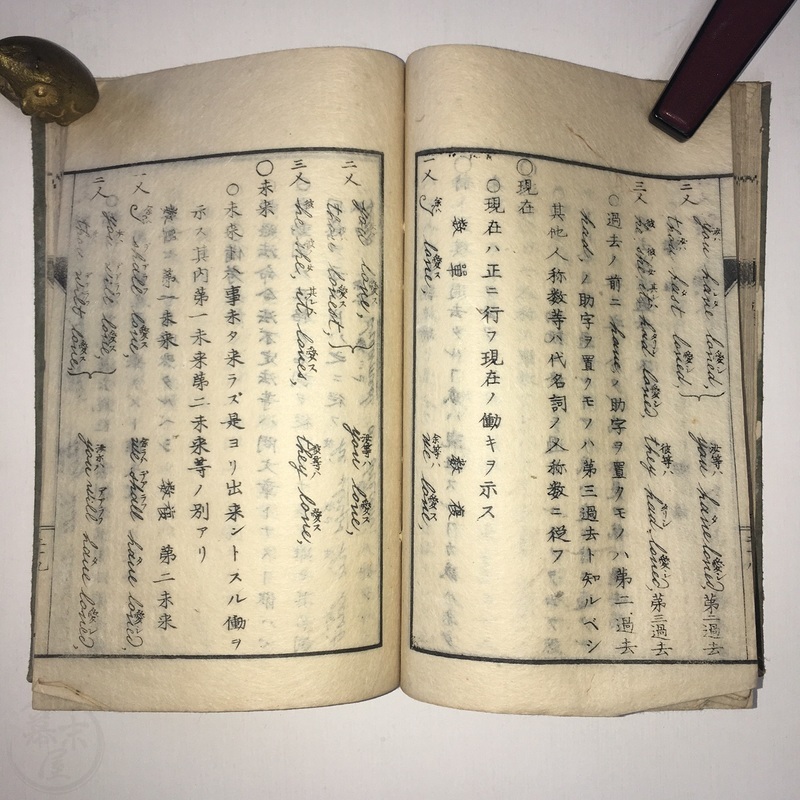 二人 you have loved, you have loved, 第二過去
thou hast loved,
三人 he she it had loved, they had loved, 第三過去
○過去ノ前ニ have ノ助字ヲ置クモノハ第二過去
had ノ助字ヲ置クモノハ第三過去ト知ルベシ
其他人称数等ハ代名詞ノ人称数ニ従フ
○現在
○現在ハ正ニ行フ現在ノ働キヲ示ス
單数 複数
一人 I love, we love,
二人 you love, you love,
thou lovest,
三人 he she, it loves, they love,
○未来
○未来ハ事未タ来ラズ是ヨリ出来ントスル働ヲ
示ス其内第一未来第二未来等ノ別アリ
第一未来 第二未来
一人 I shall love, we shall have loved,
二人 you will love, you will have loved,
thou wilt love,